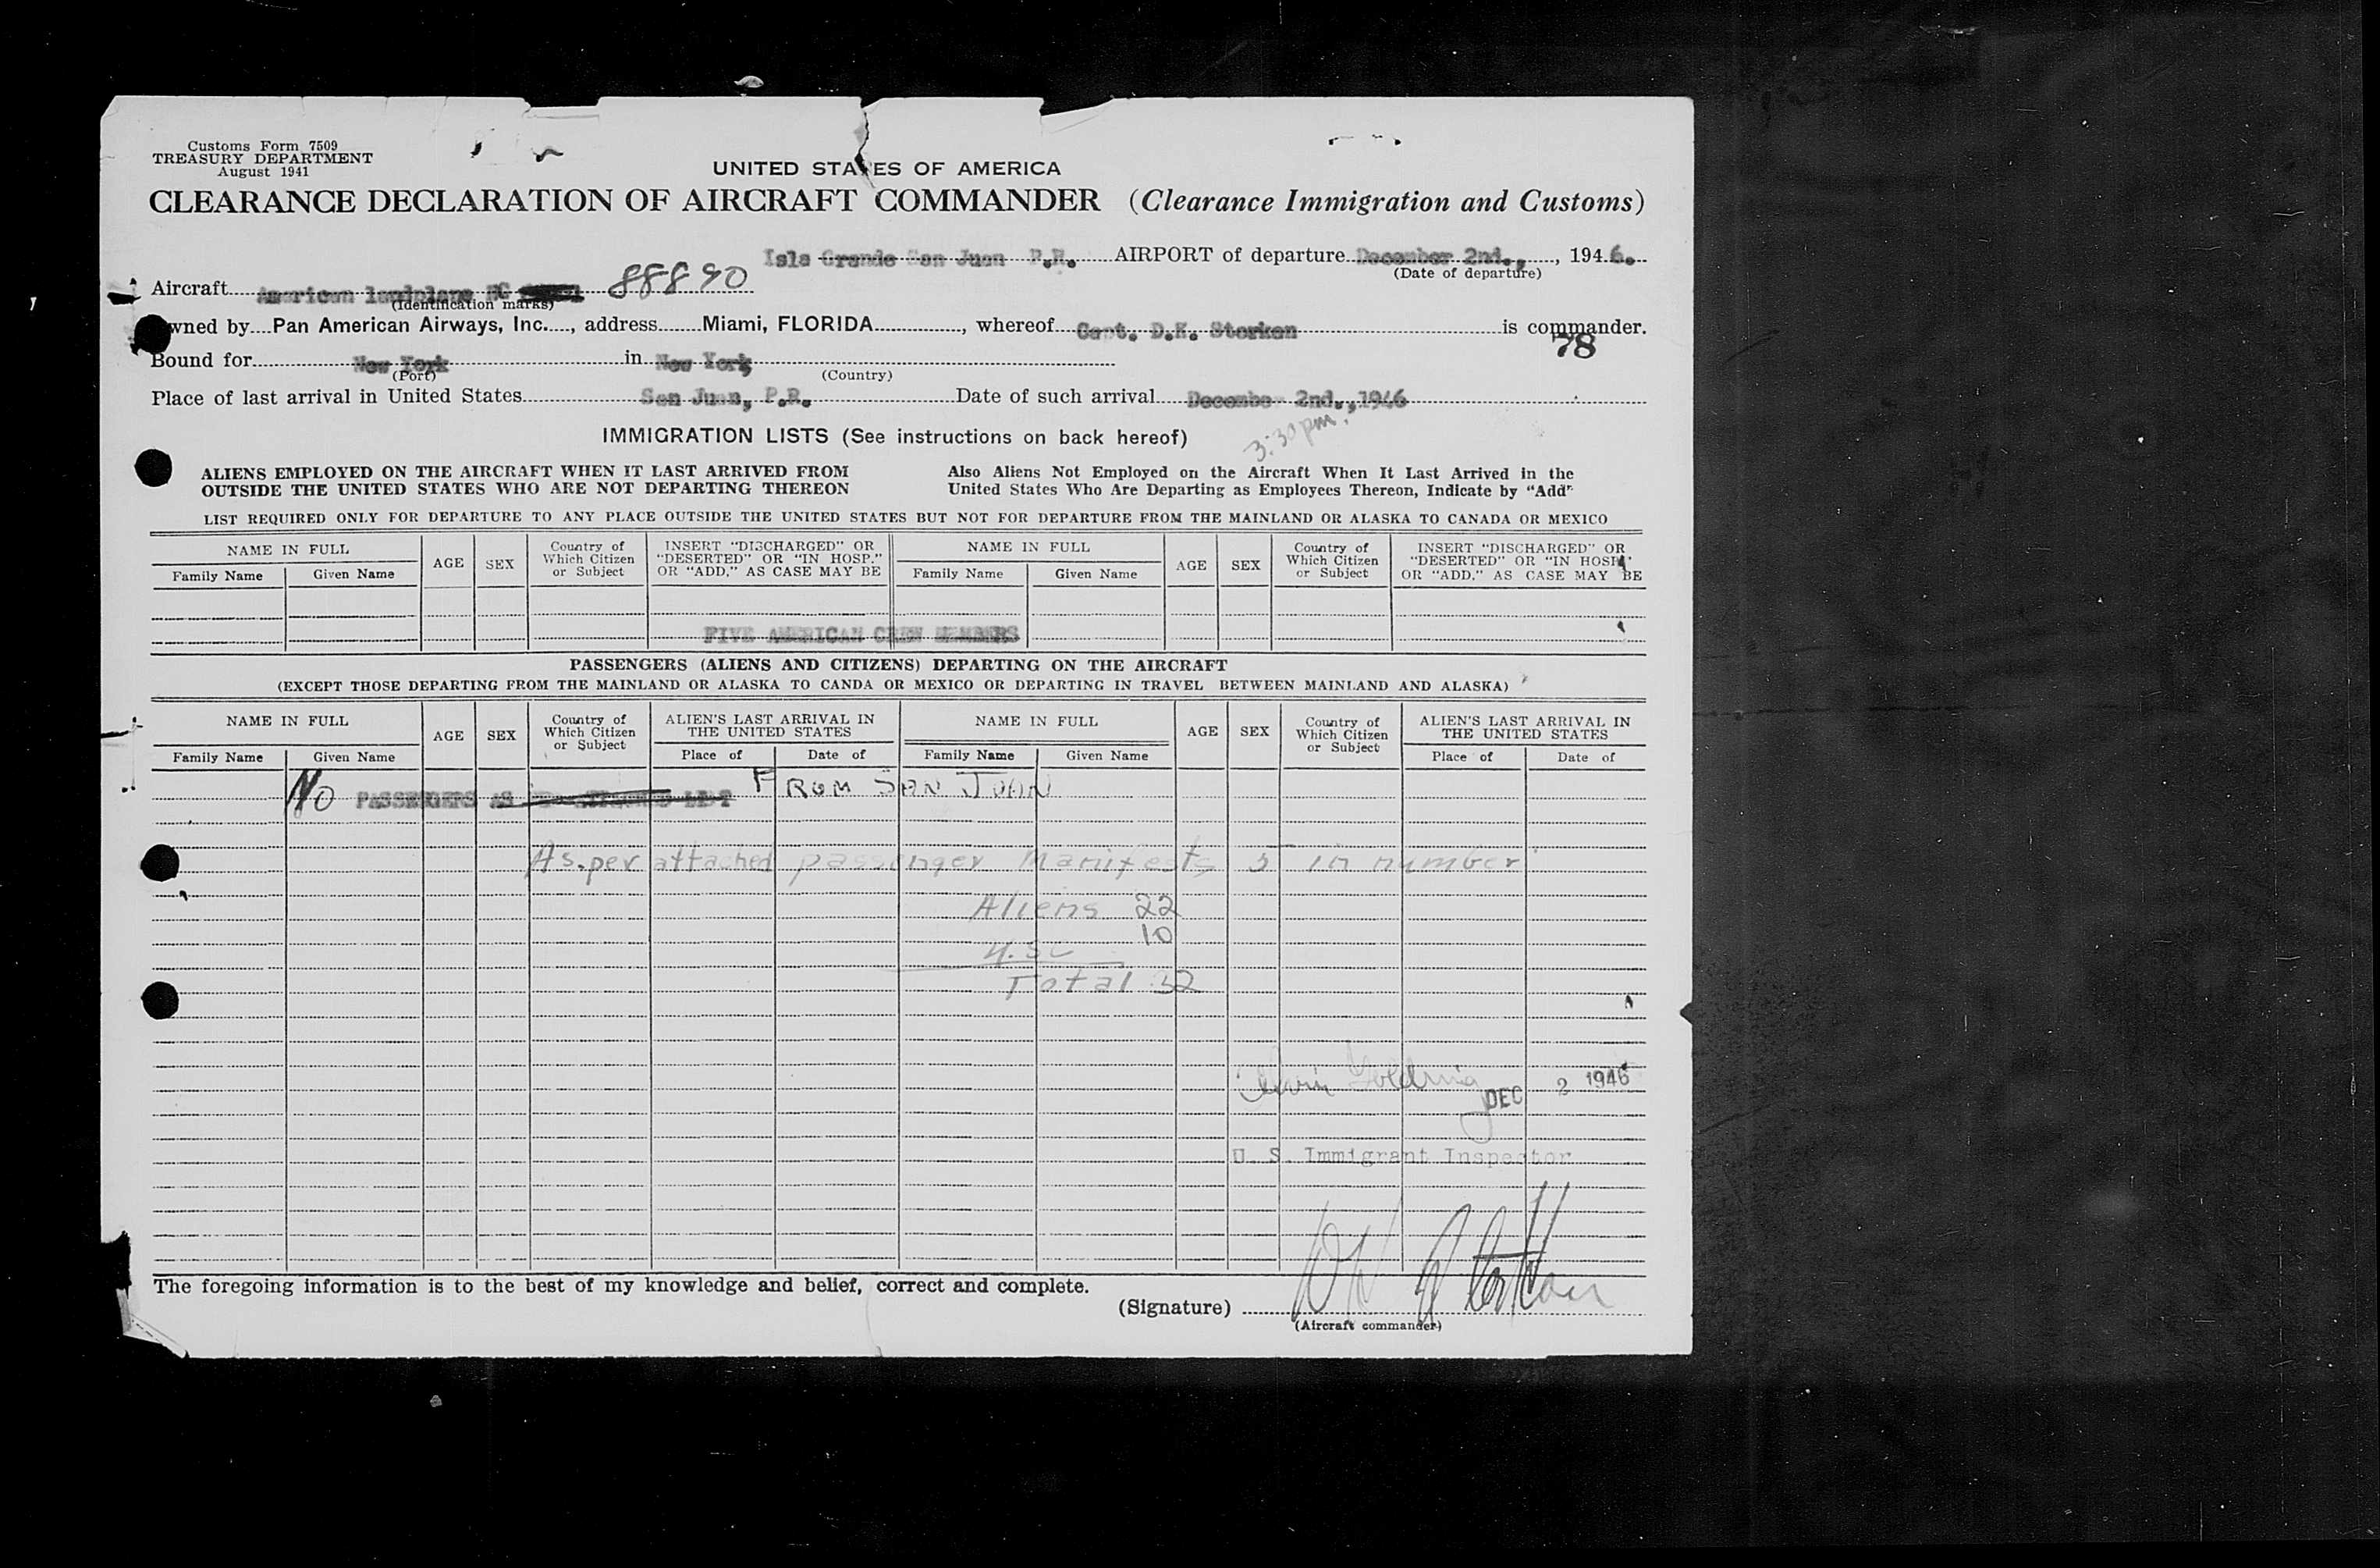 Customs Form 7509
TREASURY DEPARTMENT
August 1941
UNITED STATES OF AMERICA
CLEARANCE DECLARATION OF AIRCRAFT COMMANDER (Clearance Immigration and Customs)
Isla Grande San Juan P.R. AIRPORT of departure December 2nd., , 1946.
(Date of departure)
Aircraft American landplane NC 88890
(Identification marks)
wned by Pan American Airways, Inc. , address Miami, FLORIDA , whereof Capt. D.K. Storken is commander.
78
Bound for New York in New York
(Port) (Country)
Place of last arrival in United States San Juan, P.R. Date of such arrival December 2nd.,1946
3:30 pm.
IMMIGRATION LISTS (See instructions on back hereof)
ALIENS EMPLOYED ON THE AIRCRAFT WHEN IT LAST ARRIVED FROM
OUTSIDE THE UNITED STATES WHO ARE NOT DEPARTING THEREON
Also Aliens Not Employed on the Aircraft When It Last Arrived in the
United States Who Are Departing as Employees Thereon, Indicate by "Add"
LIST REQUIRED ONLY FOR DEPARTURE TO ANY PLACE OUTSIDE THE UNITED STATES BUT NOT FOR DEPARTURE FROM THE MAINLAND OR ALASKA TO CANADA OR MEXICO
NAME IN FULL AGE SEX Country of Which Citizen or Subject INSERT "DISCHARGED" OR "DESERTED" OR "IN HOSP." OR "ADD," AS CASE MAY BE NAME IN FULL AGE SEX Country of Which Citizen or Subject INSERT "DISCHARGED" OR "DESERTED" OR "IN HOSP." OR "ADD," AS CASE MAY BE
Family Name Given Name Family Name Given Name
FIVE AMERICAN CREW MEMBERS
PASSENGERS (ALIENS AND CITIZENS) DEPARTING ON THE AIRCRAFT
(EXCEPT THOSE DEPARTING FROM THE MAINLAND OR ALASKA TO CANDA OR MEXICO OR DEPARTING IN TRAVEL BETWEEN MAINLAND AND ALASKA)
NAME IN FULL AGE SEX Country of Which Citizen or Subject ALIEN'S LAST ARRIVAL IN THE UNITED STATES NAME IN FULL AGE SEX Country of Which Citizen or Subject ALIEN'S LAST ARRIVAL IN THE UNITED STATES
Family Name Given Name Place of Date of Family Name Given Name Place of Date of
No PASSENGERS AS PER ATTACHED LIST FROM SAN JUAN
As per attached passenger manifests 5 in number
Aliens 22
U.S.C 10
Total 32
Golding
DEC 2 1946
U. S. Immigrant Inspector
The foregoing information is to the best of my knowledge and belief, correct and complete.
(Signature) DK Storken
(Aircraft commander)